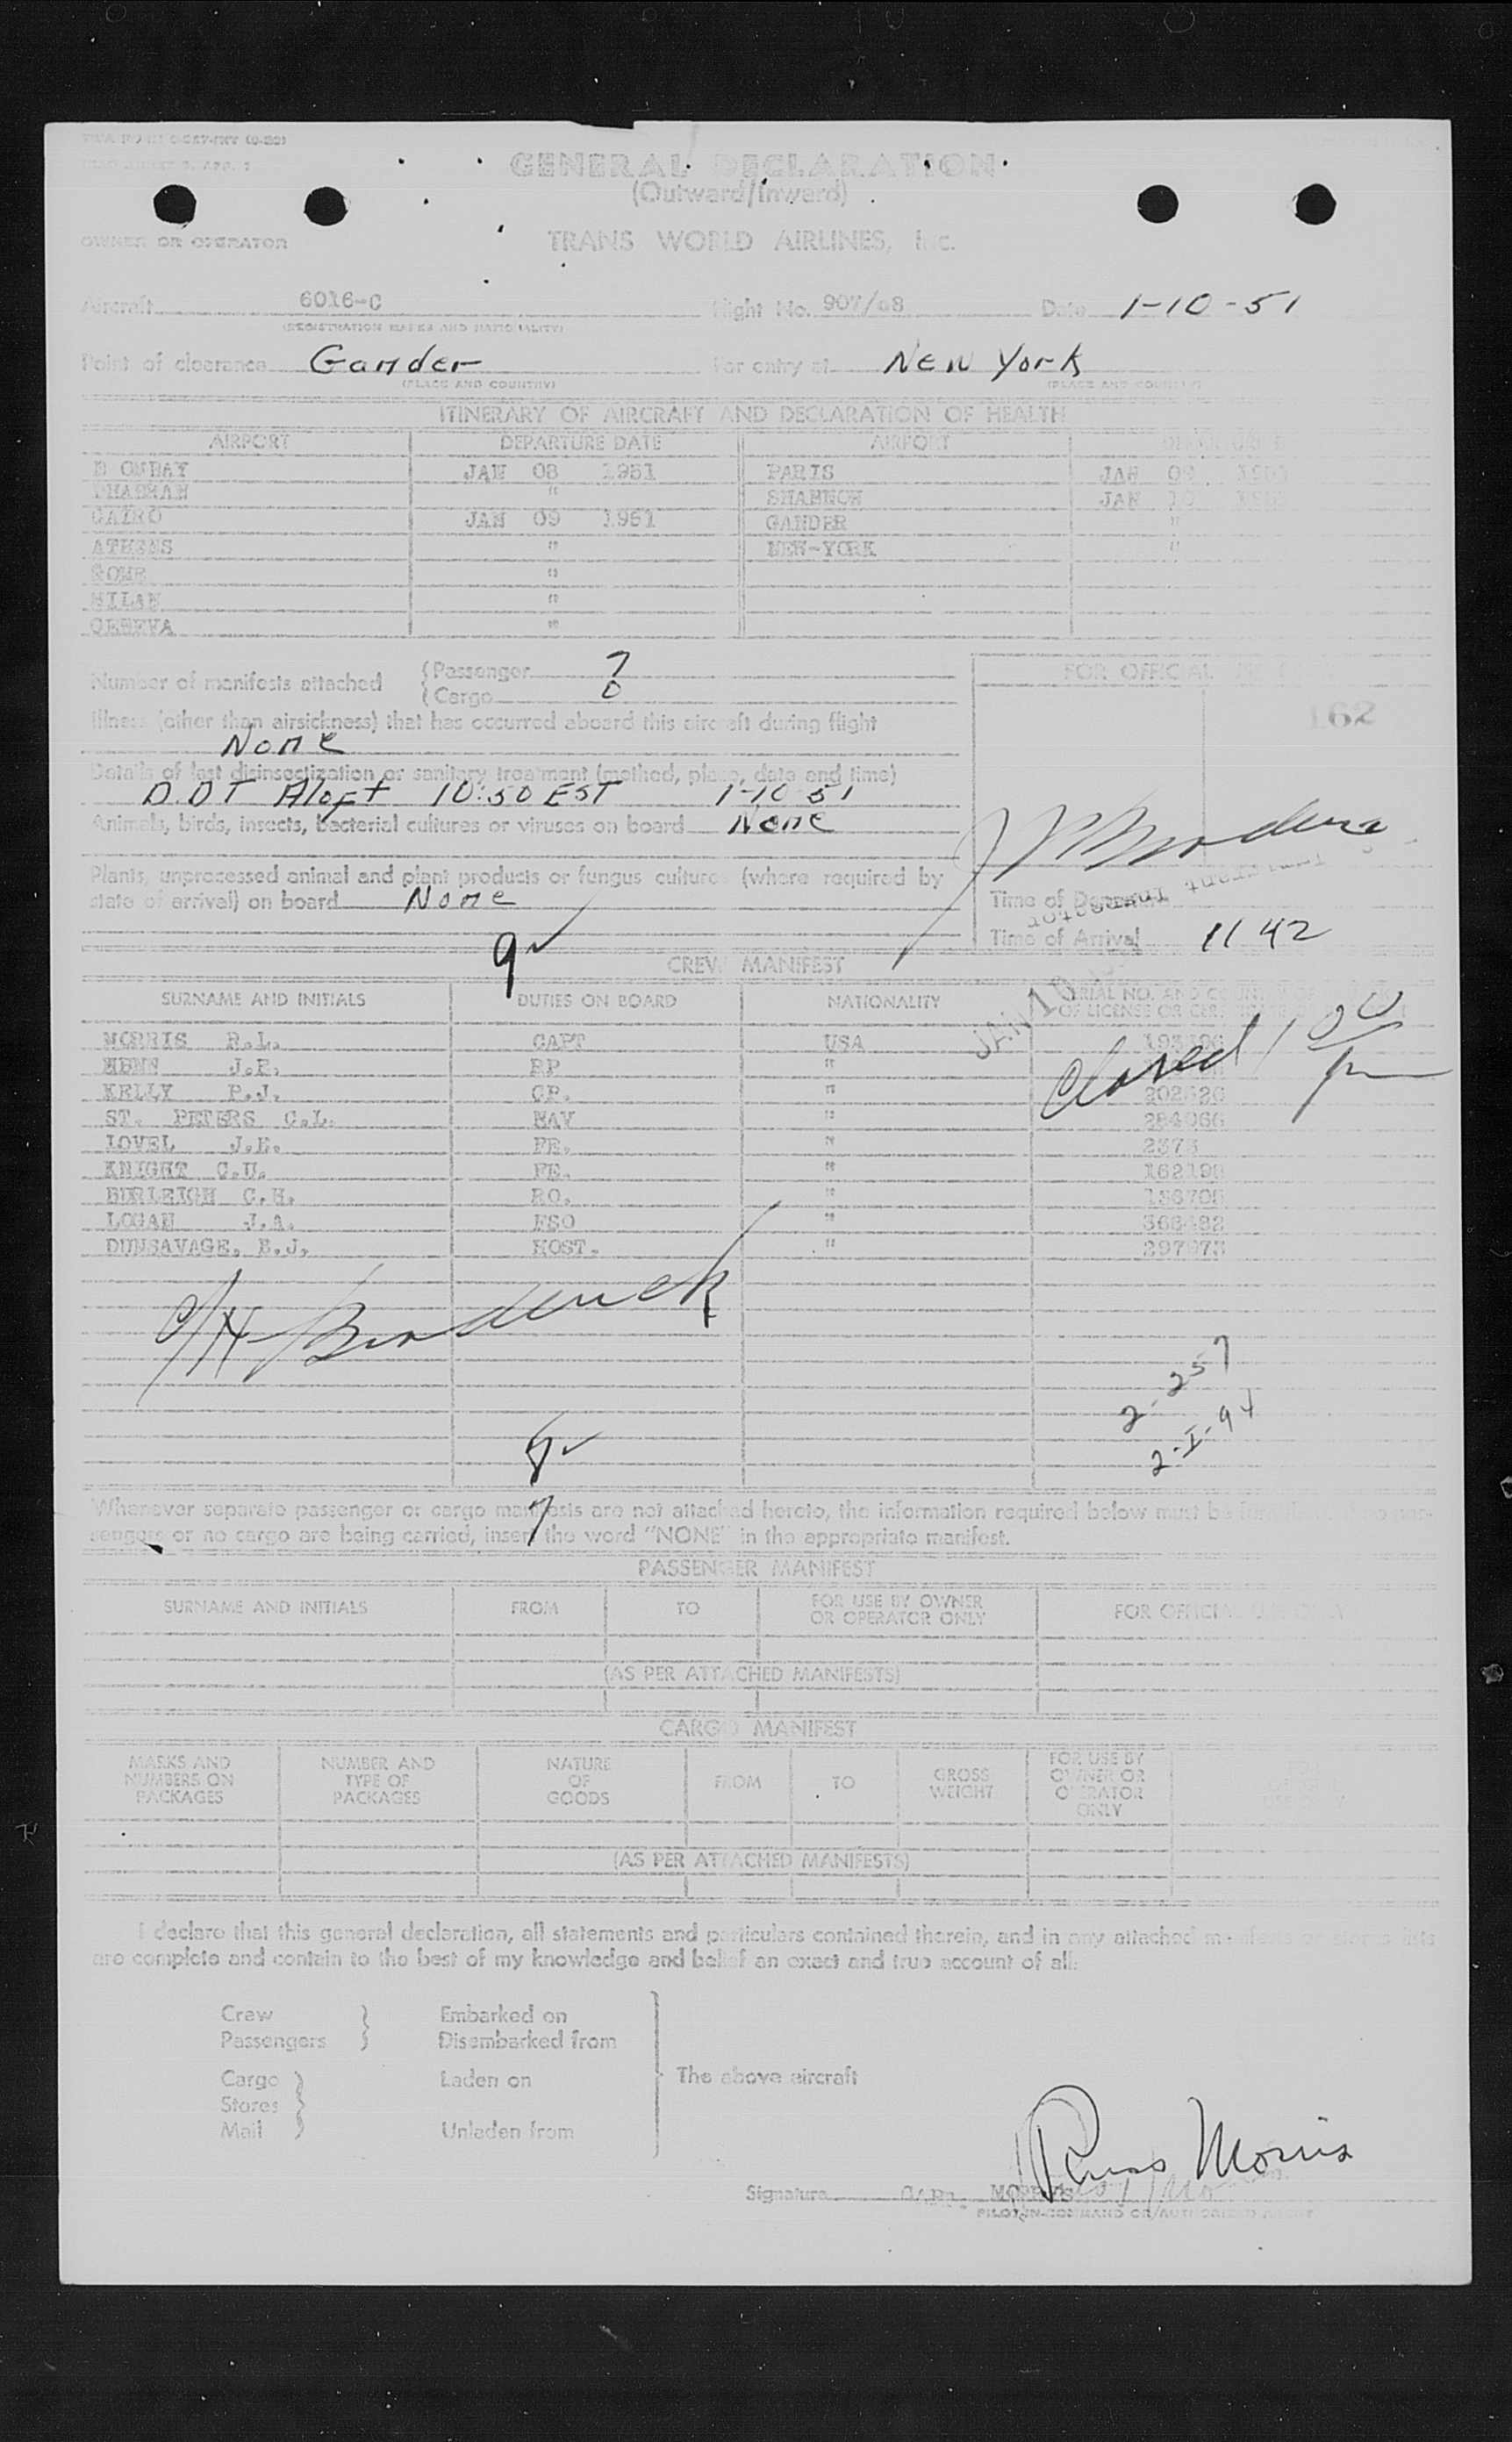 GENERAL DECLARATION
(Outward/Inward)
OWNER OR OPERATOR TRANS WORLD AIRLINES, Inc.
Aircraft 6016-C Flight No. 907/08 Date 1-10-51
(REGISTRATION MARKS AND NATIONALITY)
Point of clearance Gander For entry at New York
(PLACE AND COUNTRY) (PLACE AND COUNTRY)
ITINERARY OF AIRCRAFT AND DECLARATION OF HEALTH
AIRPORT DEPARTURE DATE AIRPORT
B OMBAY JAN 08 1951 PARIS JAN 09
DHAHRAN " SHANNON JAN 10
CAIRO JAN 09 1951 GANDER "
ATHENS " NEW-YORK "
ROME "
MILAN "
GENEVA "
Number of manifests attached (Passenger 7
(Cargo 0
FOR OFFICIAL
162
Illness (other than airsickness) that has occurred aboard this aircraft during flight
None
Details of last disinsectization or sanitary treatment (method, place, date and time)
D.D T Aloft 10:50 EST 1-10 51
Animals, birds, insects, bacterial cultures or viruses on board None
Plants, unprocessed animal and plant products or fungus cultures (where required by
state of arrival) on board None
Immigrant Inspector
Time of Departure
Time of Arrival 1142
9
CREW MANIFEST
SURNAME AND INITIALS DUTIES ON BOARD NATIONALITY SERIAL NO. AND
OF LICENSE OR
JAN 10
Closed 1 00 pm
MORRIS R.L. CAPT USA
HENN J.P. RP "
KELLY P.J. CP. "
ST. PETERS C.L. NAV " 284066
LOVEL J.E. FE. "
KNIGHT C.U. FE. " 162190
BURLEIGH C.H. RO. "
LOGAN J.A. FSO "
DUNSAVAGE, E.J. HOST. "
Broderick
2-257
2-I-94
7
Whenever separate passenger or cargo manifests are not attached hereto, the information required below must be
sengers or no cargo are being carried, insert the word "NONE" in the appropriate manifest.
PASSENGER MANIFEST
SURNAME AND INITIALS FROM TO FOR USE BY OWNER OR OPERATOR ONLY FOR OFFICIAL USE ONLY
(AS PER ATTACHED MANIFESTS)
CARGO MANIFEST
MARKS AND NUMBERS ON PACKAGES NUMBER AND TYPE OF PACKAGES NATURE OF GOODS FROM TO GROSS WEIGHT FOR USE BY OWNER OR OPERATOR ONLY
(AS PER ATTACHED MANIFESTS)
I declare that this general declaration, all statements and particulars contained therein, and in any attached manifests or stores lists
are complete and contain to the best of my knowledge and belief an exact and true account of all:
Crew } Embarked on
Passengers } Disembarked from
Cargo } Laden on The above aircraft
Stores }
Mail } Unladen from
Russ Morris
Signature CAPT. MORRIS
PILOT-IN-COMMAND OR AUTHORIZED AGENT